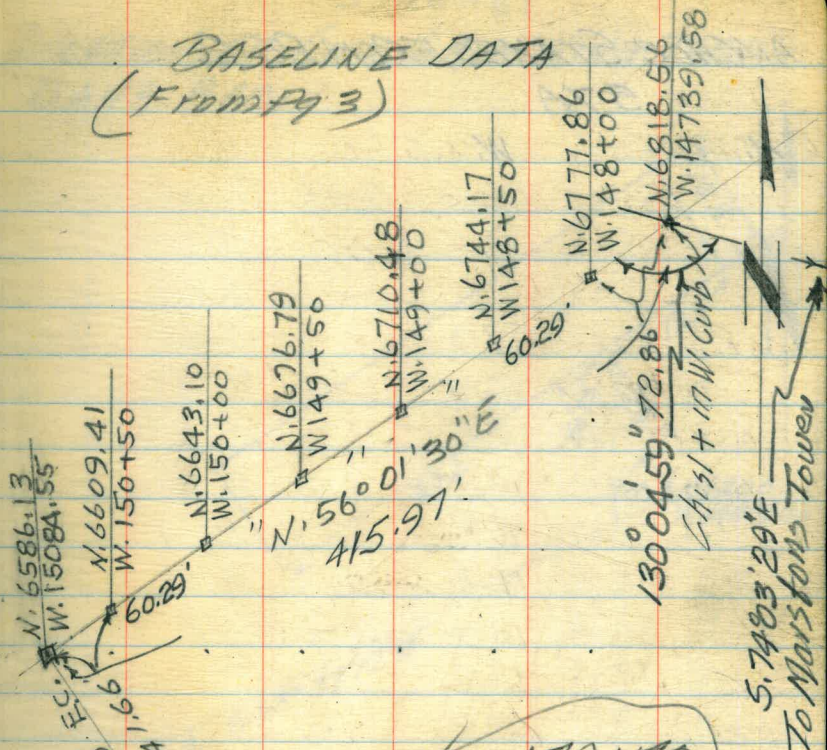 BASELINE DATA
(From Pg 3)
N. 6586.13
W. 15084.55
N. 6609.41
W. 150+50
N. 6643.10
W. 150+00
N. 6676.79
W 149+50
N. 6710.48
W. 149+00
N. 6744.17
W 148+50
N. 6777.86
W. 148+00
N. 6818.56
W. 14739.58
60.29'
"
"
"
60.29'
N. 56° 01' 30" E
415.97'
72.86
130° 04' 59"
Chisl + in W. Curb
S. 74° 03' 29" E
To Marstons Tower
E.C.
1.66